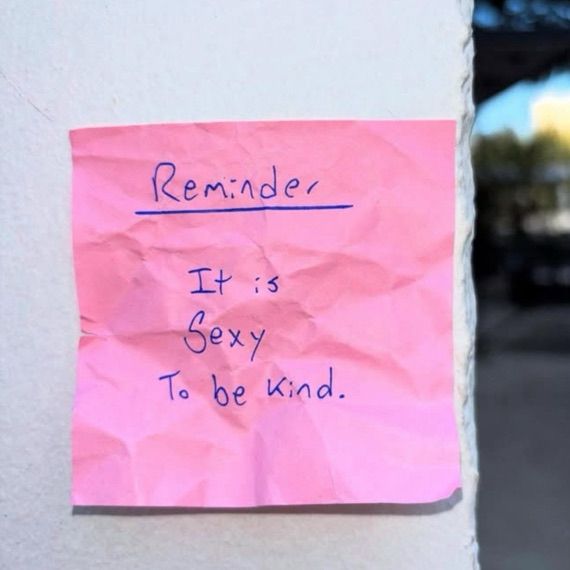 Reminder
It is
Sexy
To be kind.